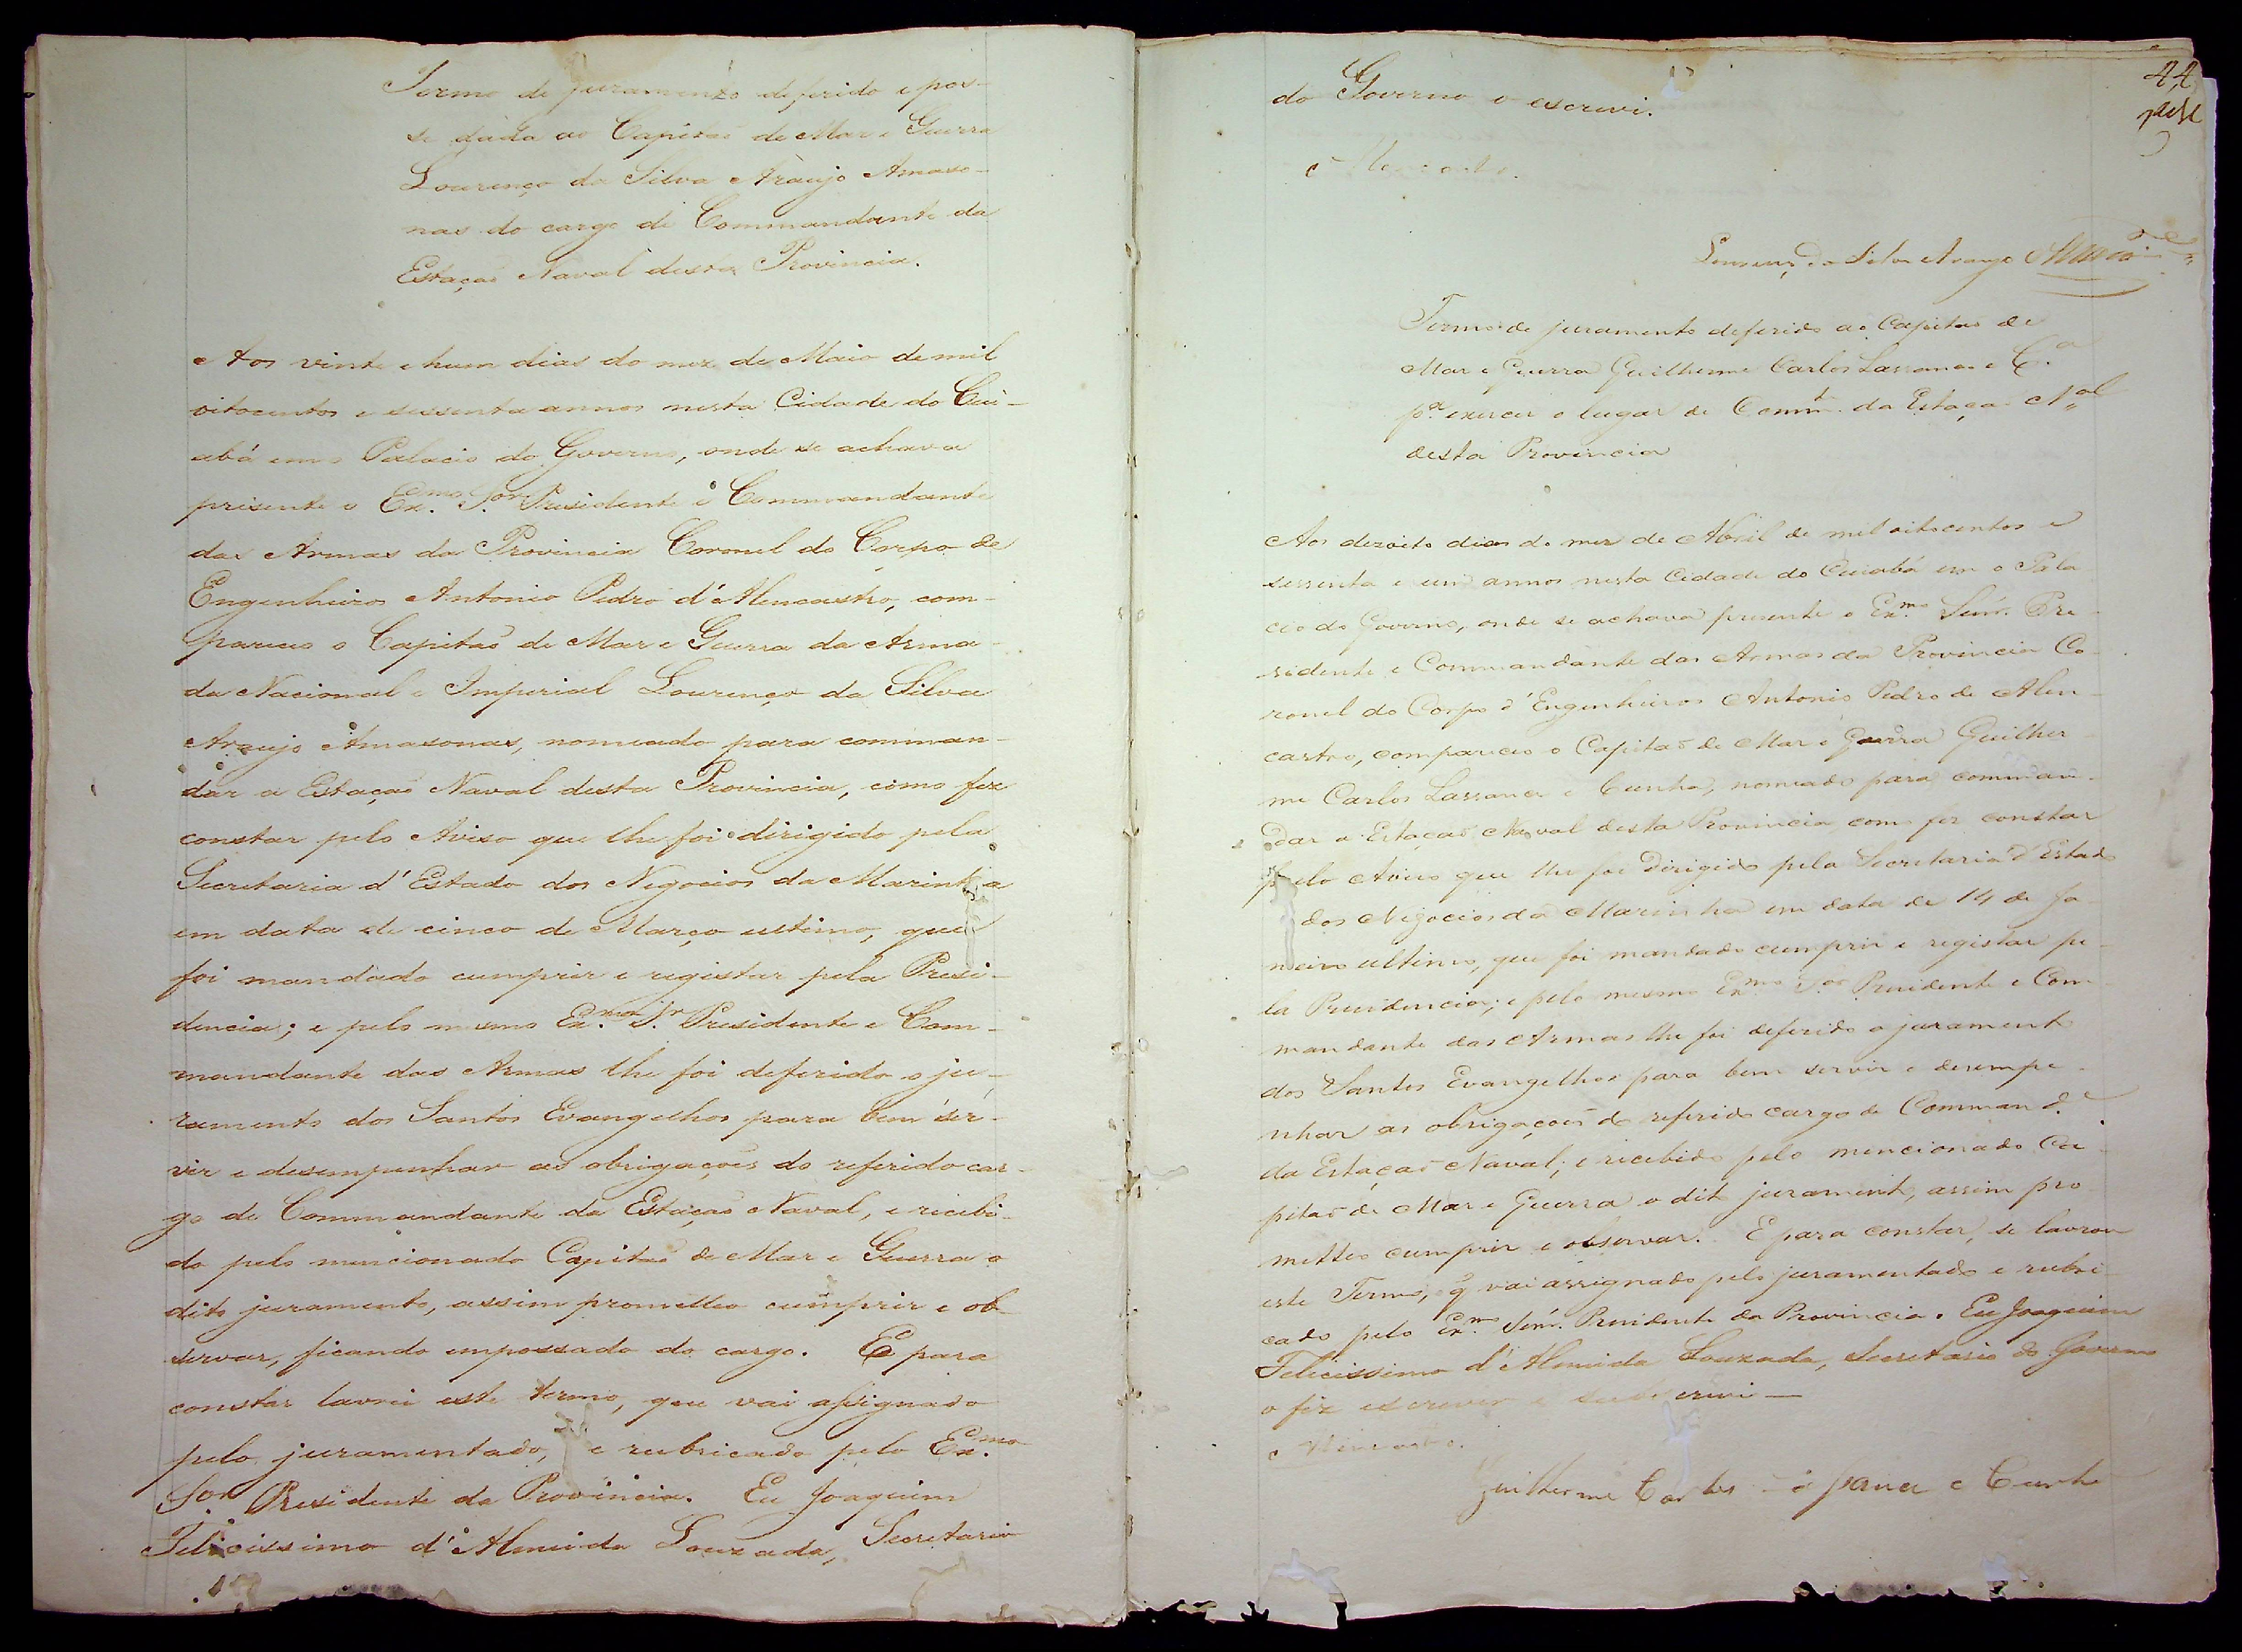 Termo de juramento deferido e pos-
se dada ao Capitaõ de Mar e Guerra
Lourenço da Silva Araujo Amaso-
nas do cargo de Commandante da
Estaçaõ Naval desta Provincia.
Aos vinte e hum dias do mez de Maio de mil
oitocentos e sessenta annos nesta Cidade do Cui-
abá em o Palacio do Governo, onde se achava
presente o Ex.mo S.or Presidente e Commandante
das Armas da Provincia Coronel do Corpo de
Engenheiros Antonio Pedro d'Alencastro, com-
pareceo o Capitaõ de Mar e Guerra da Arma-
da Nacional e Imperial Lourenço da Silva
Araujo Amasonas, nomeado para comman-
dar a Estaçaõ Naval desta Provincia, como fez
constar pelo Aviso que lhe foi dirigido pela
Secretaria d'Estado dos Negocios da Marinha
em data de cinco de Março ultimo, que
foi mandado cumprir e registar pela Presi-
dencia; e pelo mesmo Ex.mo S.r Presidente e Com-
mandante das Armas lhe foi deferido o ju-
ramento dos Santos Evangelhos para bem ser-
vir e desempenhar as obrigaçoẽs do referido car-
go de Commandante da Estaçaõ Naval, e recebi-
do pelo mencionado Capitaõ de Mar e Guerra o
dito juramento, assim prometteo cumprir e ob-
servar, ficando empossado do cargo. E para
constar lavrei este termo, que vai assignado
pelo juramentado, e rubricado pelo Ex.mo
S.or Presidente da Provincia. Eu Joaquim
Felicissimo d'Almeida Louzada, Secretario
44
do Governo o escrevi.
Alencastro.
Lourenço da Silva Araujo Amazonas
Termo de juramento deferido ao Capitaõ de
Mar e Guerra Guilherme Carlos Lassance e C.a
p.a exercer o lugar de Comm.te da Estaçaõ N.al
desta Provincia
Aos dezoito dias do mez de Abril de mil oitocentos e
sessenta e um annos nesta Cidade do Cuiabá em o Pala
cio do Governo, onde se achava presente o Ex.mo Senr. Pre-
sidente e Commandante das Armas da Provincia Co-
ronel do Corpo d'Engenheiros Antonio Pedro de Alen-
castro, compareceo o Capitaõ de Mar e Guerra Guilher-
me Carlos Lassance e Cunha, nomeado para comman-
dar a Estaçaõ Naval desta Provincia como fez constar
pelo Aviso que lhe foi dirigido pela Secretaria d'Estado
dos Negocios da Marinha em data de 14 de Ja-
neiro ultimo, que foi mandado cumprir e registar pe-
la Presidencia; e pelo mesmo Ex.mo S.or Presidente e Com-
mandante das Armas lhe foi deferido o juramento
dos Santos Evangelhos para bem servir e desempe-
nhar as obrigaçoẽs do referido cargo de Command.e
da Estaçaõ Naval; e recebido pelo mencionado Ca-
pitaõ de Mar e Guerra o dito juramento, assim pro
metteo cumprir e observar. E para constar, se lavrou
este Termo, q̃ vai assignado pelo juramentado e rubri-
cado pelo Ex.mo Senr. Presidente da Provincia. Eu Joaquim
Felicissimo d'Almeida Louzada, Secretario do Governo
o fiz escrever e subscrevi —
Alencastro.
Guilherme Carlos Lassance e Cunha